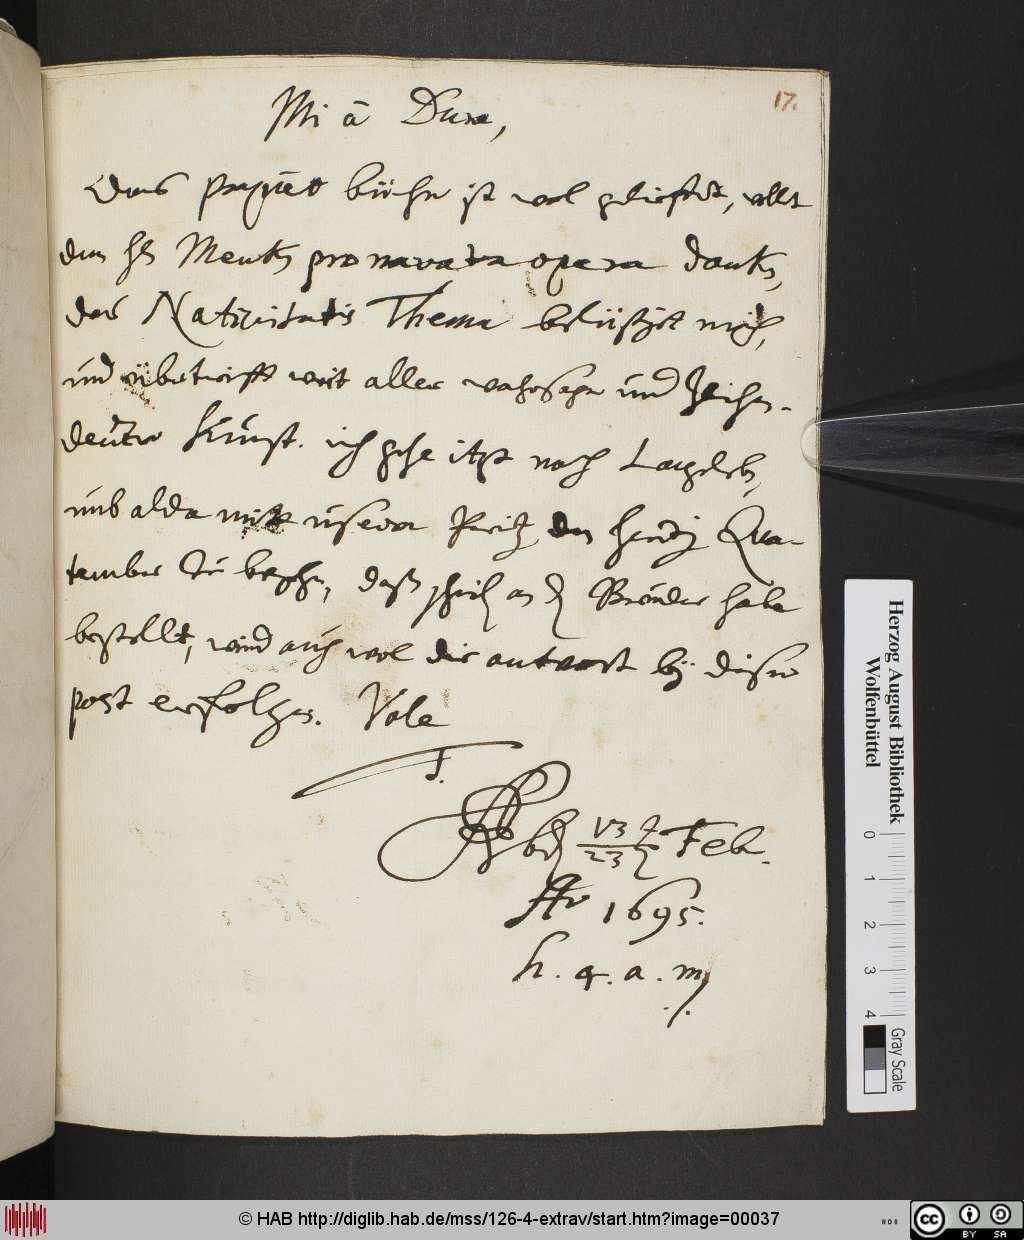 17.
Mi ā Dura,
Das paquet bücher ist wol geliefert, wollt
den H. Mencken pro navata opera dancken,
das Nativitatis Thema belustiget mich,
und übertrifft weit aller wahrsager und Zeichen-
deuter Kunst. ich gehe itzt nach
umb alda mit den Qua-
tember zu begehen, daß an Bruder habe
bestellt, wird auch wol die antwort bey dieser
post erfolgen. Vale
T.
13
23 Feb.
Ao 1695.
h. 9. a. m.
Herzog August Bibliothek
Wolfenbüttel
0 1 2 3 4
Gray Scale
© HAB http://diglib.hab.de/mss/126-4-extrav/start.htm?image=00037
cc BY SA